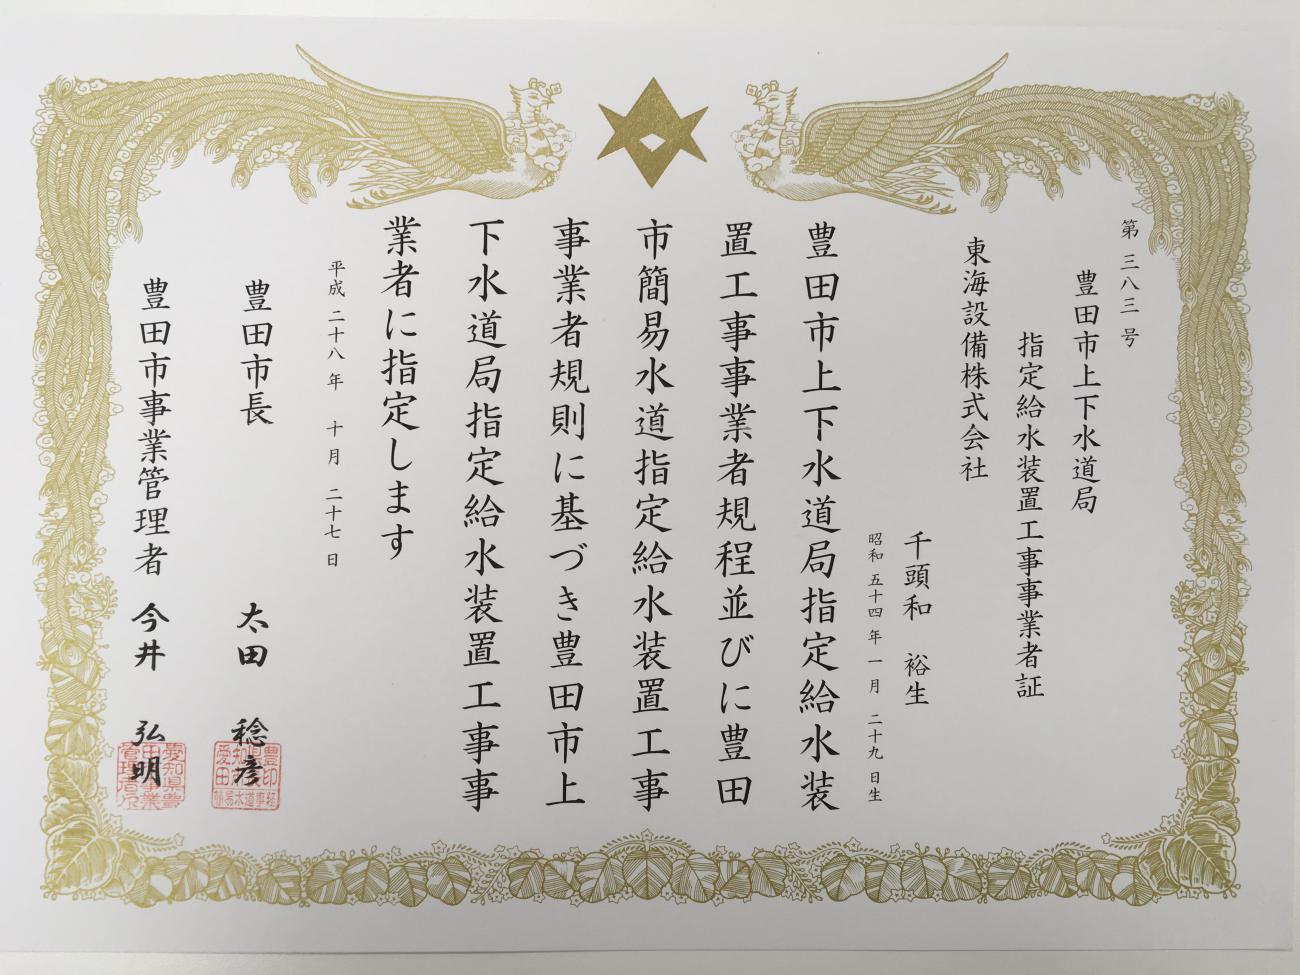 第三八三号
豊田市上下水道局
指定給水装置工事事業者証
東海設備株式会社
千頭和 裕生
昭和 五十四 年 一 月 二十九 日生
豊田市上下水道局指定給水装
置工事事業者規程並びに豊田
市簡易水道指定給水装置工事
事業者規則に基づき豊田市上
下水道局指定給水装置工事事
業者に指定します
平成 二十八 年 十 月 二十七 日
豊田市長 太田 稔彦
豊田市事業管理者 今井 弘明